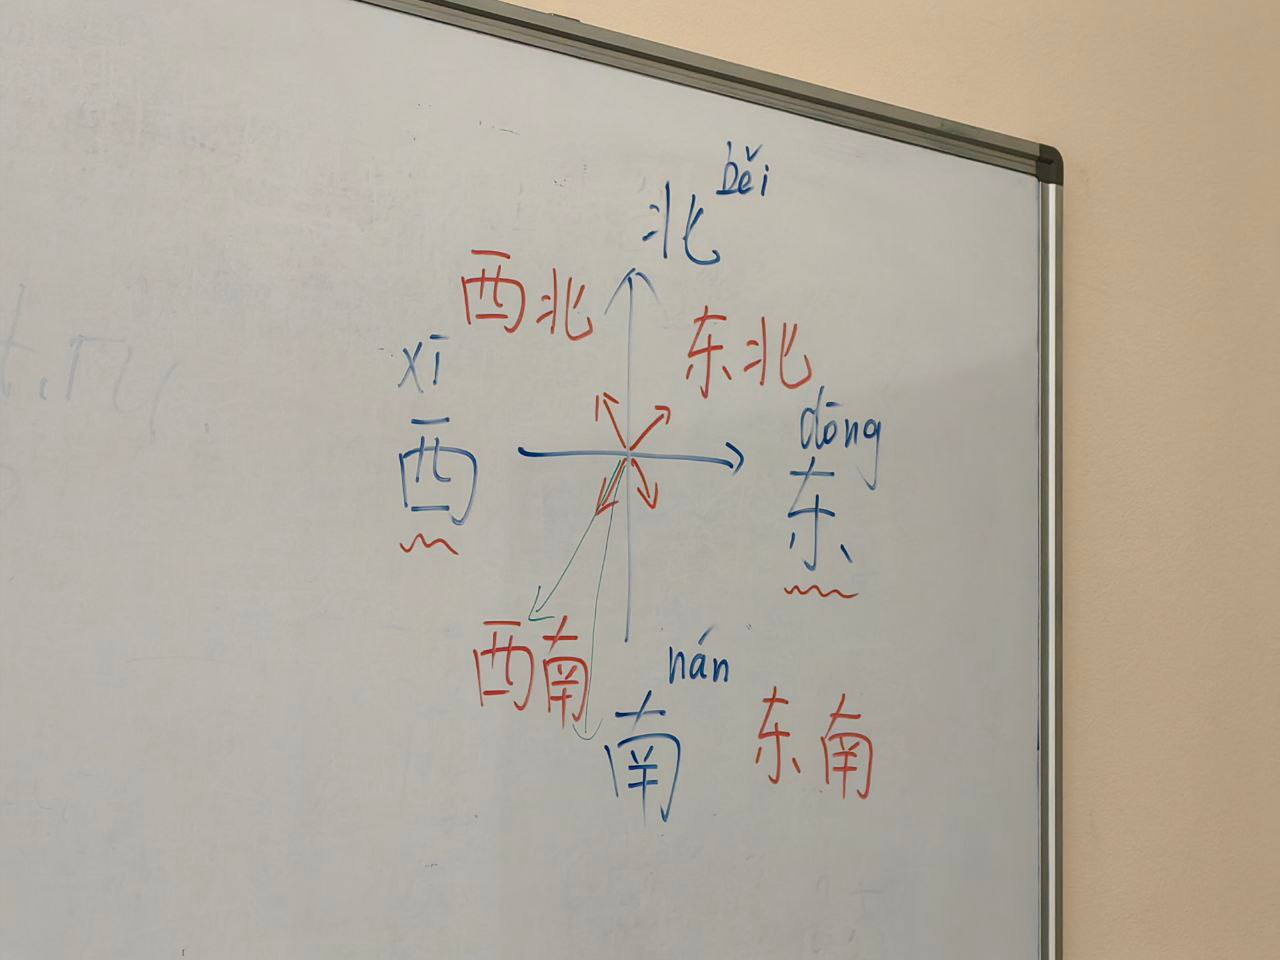 běi
北
西北
东北
xī
西
dōng
东
西南
nán
南
东南